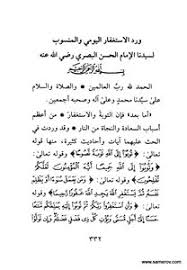 ورد الاستغفار اليومي والمنسوب
لسيدنا الإمام الحسن البصري رضي الله عنه
بسم الله الرحمن الرحيم
الحمد لله ربّ العالمين * والصلاة والسلام
على سيّدنا محمدٍ وعلى آله وصحبه أجمعين.
أما بعد: فإن التوبة والاستغفار * من أعظم
أسباب السعادة والنجاة من النار * وقد وردت في
الحث عليهما آيات وأحاديث كثيرة منها قوله
تعالى: ﴿تُوبُوا إِلَى اللَّهِ تَوْبَةً نَصُوحًا﴾ وقوله تعالى:
﴿وَتُوبُوا إِلَى اللَّهِ جَمِيعًا أَيُّهَ الْمُؤْمِنُونَ لَعَلَّكُمْ
تُفْلِحُونَ﴾ وقوله تعالى: ﴿وَأَنِ اسْتَغْفِرُوا رَبَّكُمْ
ثُمَّ تُوبُوا إِلَيْهِ يُمَتِّعْكُمْ مَتَاعًا حَسَنًا إِلَى أَجَلٍ
٣٣٢
www.samerov.com